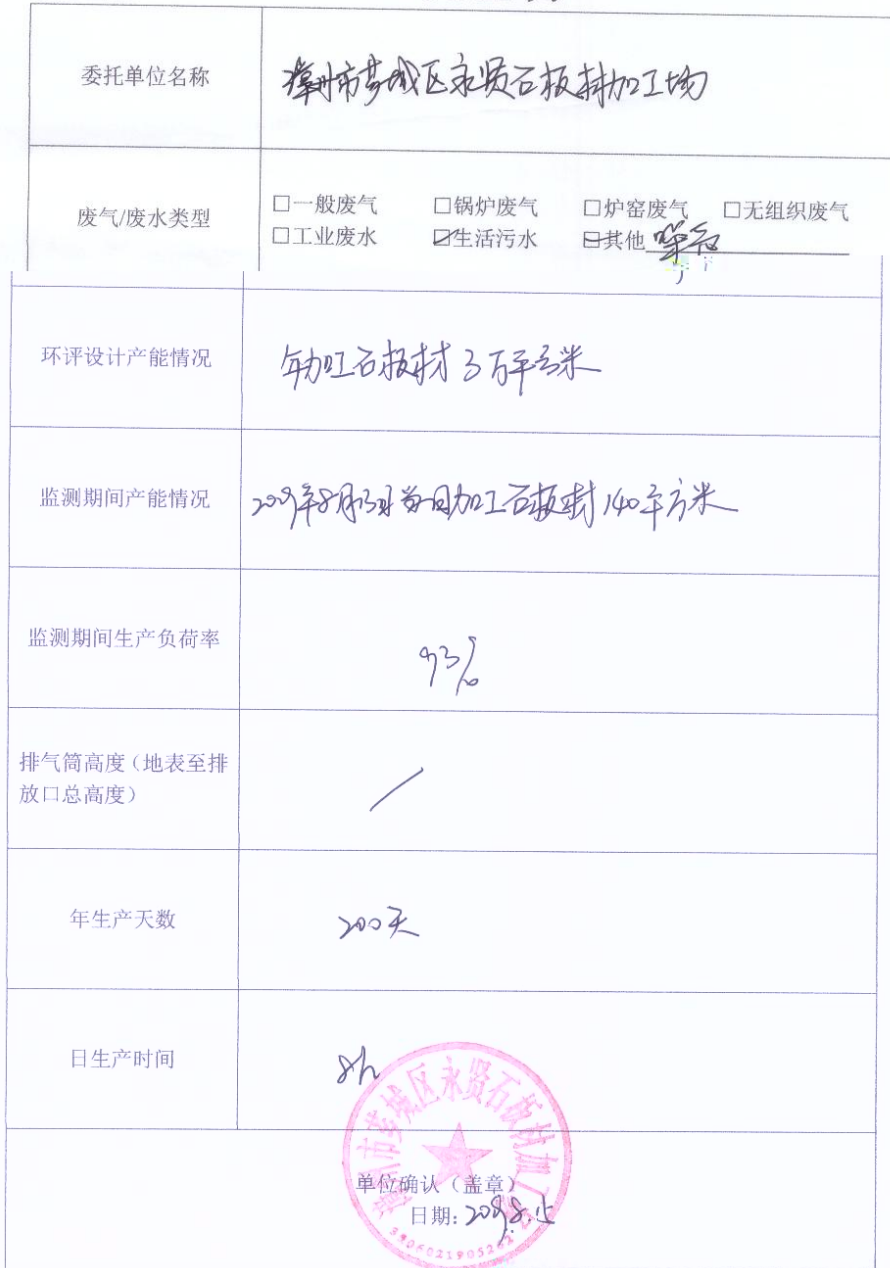 委托单位名称
漳州市芗城区永贤石板材加工场
废气/废水类型
□一般废气 □锅炉废气 □炉窑废气 □无组织废气
□工业废水 ☑生活污水 ☑其他 噪声
环评设计产能情况
年加工石板材3万平方米
监测期间产能情况
2019年8月 加工石板材140平方米
监测期间生产负荷率
93%
排气筒高度（地表至排
放口总高度）
/
年生产天数
200天
日生产时间
8h
漳州市芗城区永贤石板材加工厂
单位确认（盖章）
日期: 2019.8.15